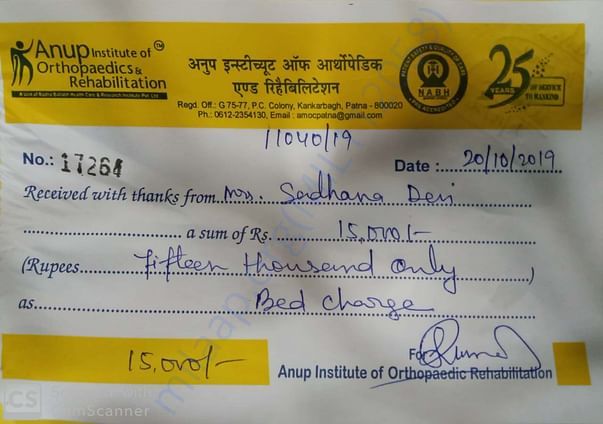 Anup Institute of
Orthopaedics &
Rehabilitation
TM
अनुप इन्स्टीच्यूट ऑफ आर्थोपेडिक
एण्ड रिहैबिलिटेशन
Regd. Off.: G 75-77, P.C. Colony, Kankarbagh, Patna - 800020
Ph.: 0612-2354130, Email : amocpatna@gmail.com
NABH
25
YEARS
OF SERVICE
TO MANKIND
11040/19
No.: 17264
Date : 20/10/2019
Received with thanks from Mrs. Sadhana Devi
a sum of Rs. 15,000/-
(Rupees Fifteen thousand Only )
as Bed charge
15,000/-
For
Anup Institute of Orthopaedic Rehabilitation
CS
CamScanner